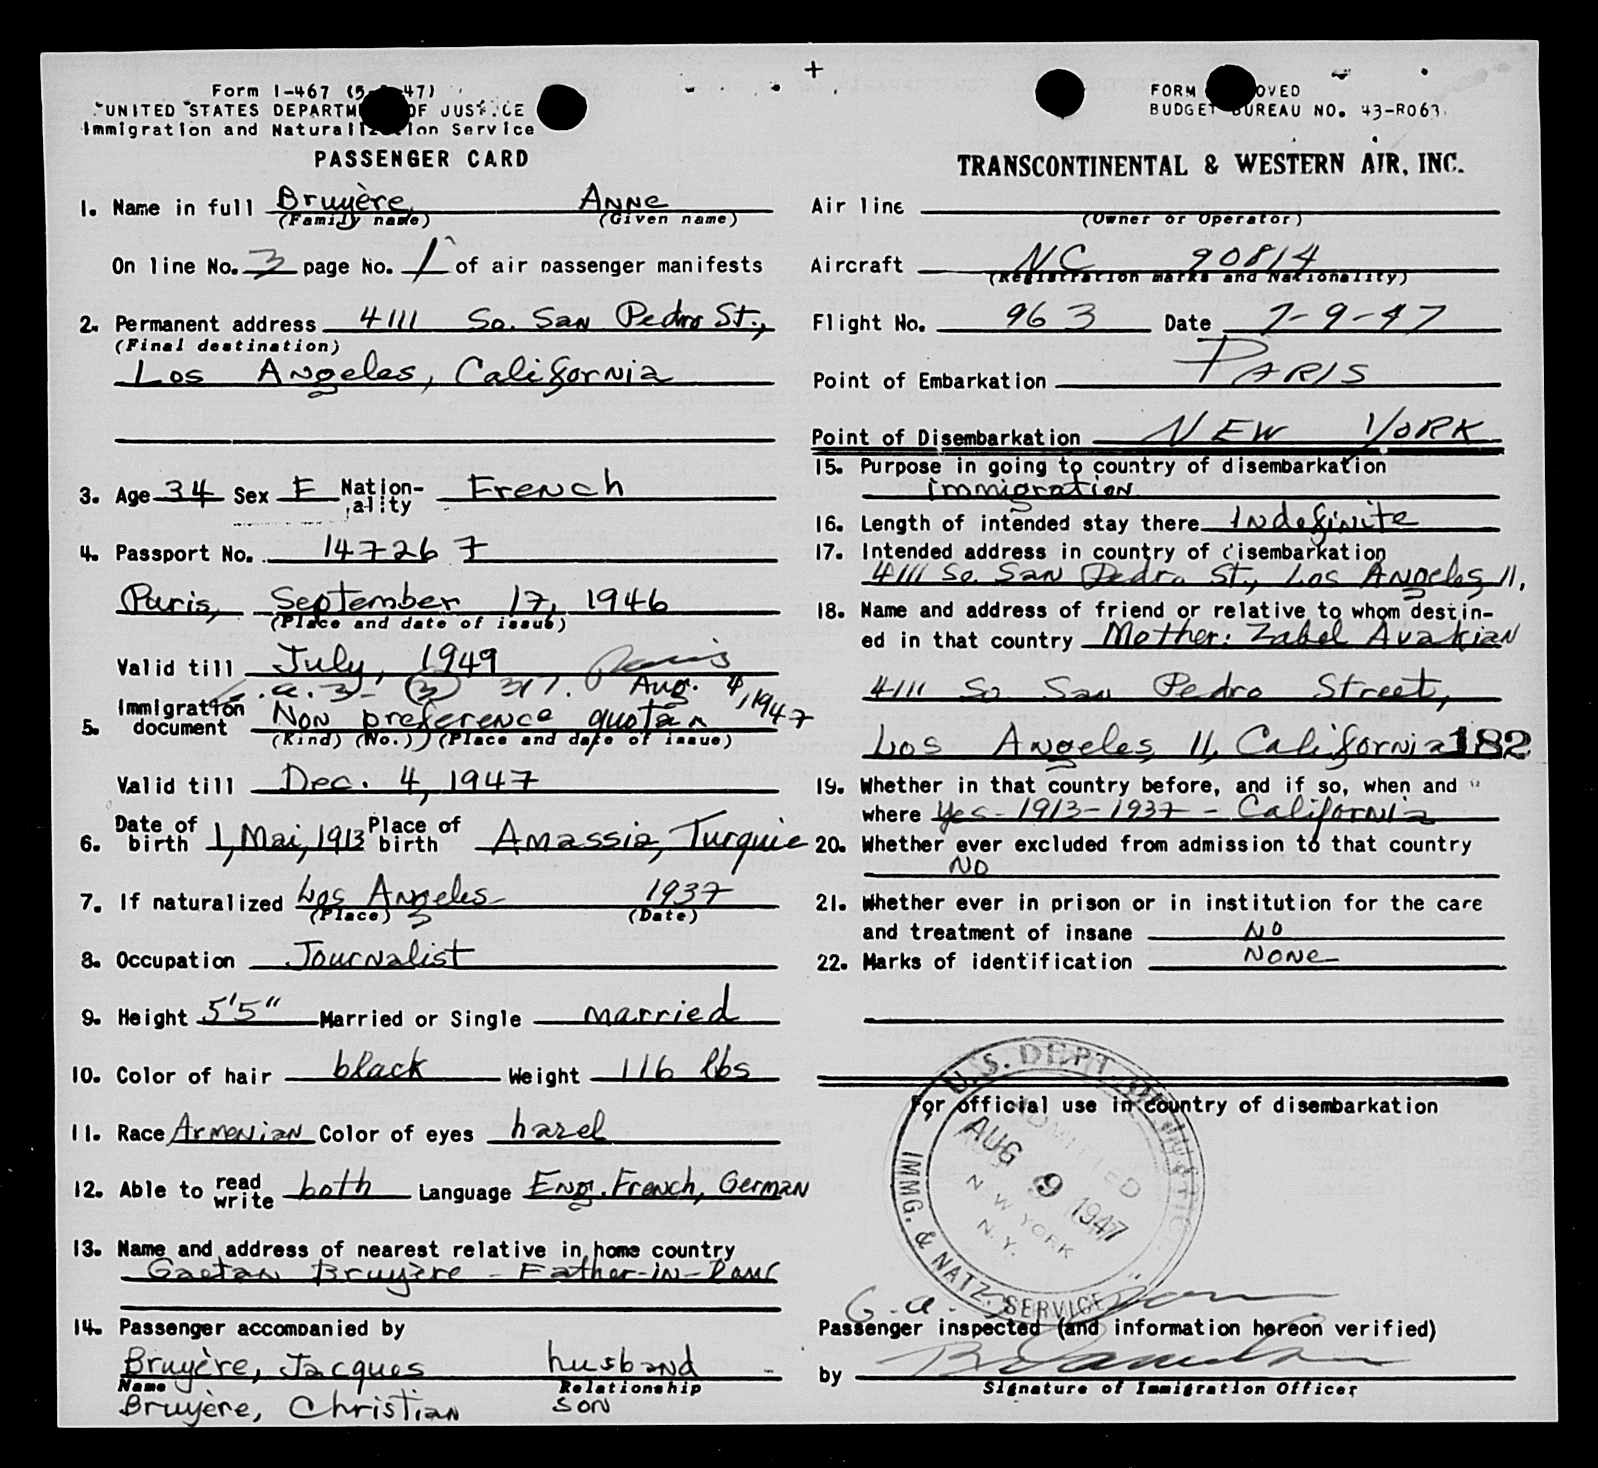 Form I-467 (5- -47)
UNITED STATES DEPARTM OF JUSTICE
Immigration and Naturalization Service
PASSENGER CARD
1. Name in full Bruyère Anne
(Family name) (Given name)
On line No. 3 page No. 1 of air passenger manifests
2. Permanent address 4111 So. San Pedro St.,
(Final destination)
Los Angeles, California
3. Age 34 Sex F Nation-ality French
4. Passport No. 147267
Paris, September 17, 1946
(Place and date of issue)
Valid till July, 1949
(3) 317. Paris Aug. 4, 1947
5. Immigration document Non preference quota
(Kind) (No.) (Place and date of issue)
Valid till Dec. 4, 1947
6. Date of birth 1, Mai, 1913 Place of birth Amassia, Turquie
7. If naturalized Los Angeles 1937
(Place) (Date)
8. Occupation Journalist
9. Height 5'5" Married or Single married
10. Color of hair black Weight 116 lbs
11. Race Armenian Color of eyes hazel
12. Able to read write both Language Eng. French, German
13. Name and address of nearest relative in home country
Gaetan Bruyère - Father-in-
14. Passenger accompanied by
Bruyère, Jacques husband
Name Relationship
Bruyère, Christian son
FORM OVED
BUDGET BUREAU NO. 43-R063.
TRANSCONTINENTAL & WESTERN AIR, INC.
Air line
(Owner or Operator)
Aircraft NC 90814
(Registration marks and Nationality)
Flight No. 963 Date 7-9-47
Point of Embarkation PARIS
Point of Disembarkation NEW YORK
15. Purpose in going to country of disembarkation
immigration
16. Length of intended stay there Indefinite
17. Intended address in country of disembarkation
4111 So. San Pedro St., Los Angeles 11,
18. Name and address of friend or relative to whom destin-
ed in that country Mother: Zabel Avakian
4111 So. San Pedro Street,
Los Angeles, 11, California 182
19. Whether in that country before, and if so, when and
where Yes - 1913-1937 - California
20. Whether ever excluded from admission to that country
No
21. Whether ever in prison or in institution for the care
and treatment of insane No
22. Marks of identification None
For official use in country of disembarkation
U.S. DEPT. OF JUSTICE
IMMG. & NATZ. SERVICE
ADMITTED
AUG 9 1947
N W YORK
N. Y.
Passenger inspected (and information hereon verified)
by
Signature of Immigration Officer